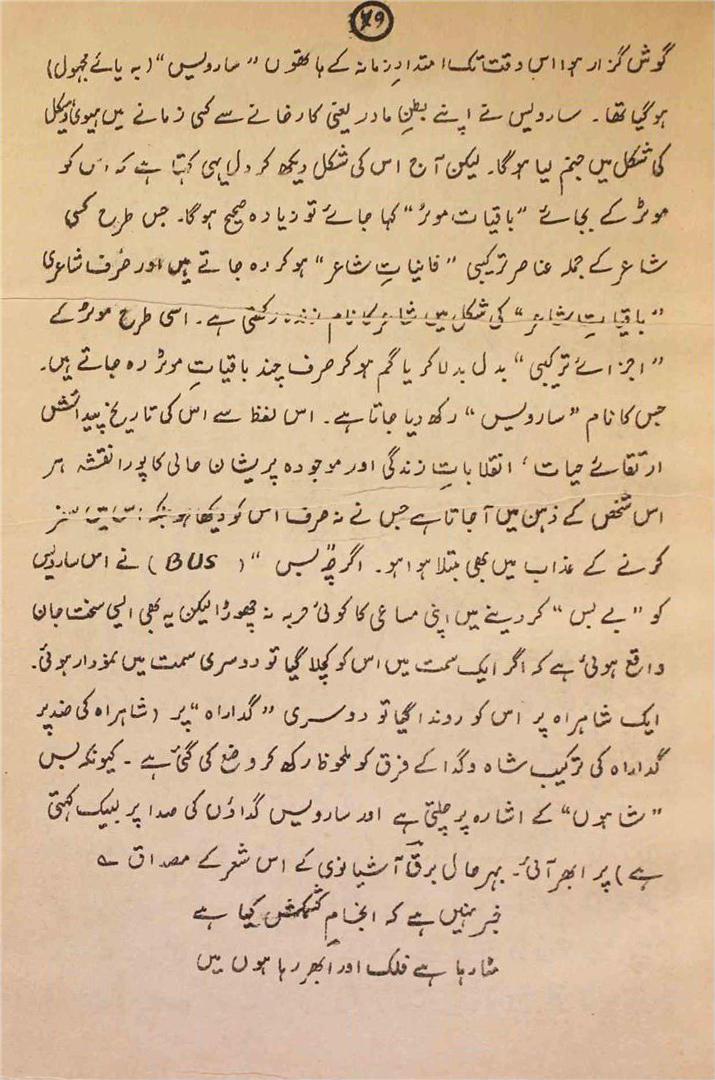 ۴۹
گوش گزار ہوا اس وقت تک امتدادِ زمانہ کے ہاتھوں "سارویس" (بہ یائے مجہول)
ہوگیا تھا۔ سارویس نے اپنے بطنِ مادر یعنی کارخانے سے کسی زمانے میں ہیوی وہیکل
کی شکل میں جنم لیا ہوگا۔ لیکن آج اس کی شکل دیکھ کر دل یہی کہتا ہے کہ اس کو
موٹر کے بجائے "باقیات موٹر" کہا جائے تو زیادہ صحیح ہوگا۔ جس طرح کسی
شاعر کے جملہ عناصر ترکیبی "فانیاتِ شاعر" ہوکر رہ جاتے ہیں اور صرف شاعری
"باقیاتِ شاعر" کی شکل میں شاعر کا نام زندہ رکھتی ہے۔ اسی طرح موٹر کے
"اجزائے ترکیبی" بدل بدلا کر یا گم ہوکر صرف چند باقیاتِ موٹر رہ جاتے ہیں۔
جس کا نام "سارویس" رکھ دیا جاتا ہے۔ اس لفظ سے اس کی تاریخ پیدائش
ارتقائے حیات، انقلاباتِ زندگی اور موجودہ پریشان حالی کا پورا نقشہ ہر
اس شخص کے ذہن میں آجاتا ہے جس نے نہ صرف اس کو دیکھا ہو بلکہ اس میں سفر
کرنے کے عذاب میں بھی مبتلا ہوا ہو۔ اگرچہ "بس" (BUS) نے اس سارویس
کو "بے بس" کردینے میں اپنی مساعی کا کوئی حربہ نہ چھوڑا لیکن یہ بھی ایسی سخت جان
واقع ہوئی ہے کہ اگر ایک سمت میں اس کو کچلا گیا تو دوسری سمت میں نمودار ہوئی۔
ایک شاہراہ پر اس کو روندا گیا تو دوسری "گداراہ" پر (شاہراہ کی ضد پر
گداراہ کی ترکیب شاہ و گدا کے فرق کو ملحوظ رکھ کر وضع کی گئی ہے۔ کیونکہ بس
"شاہوں" کے اشارہ پر چلتی ہے اور سارویس گداؤں کی صدا پر لبیک کہتی
ہے) پر ابھر آئی۔ بہرحال برقؔ آشیانوی کے اس شعر کے مصداق ؎
خبر نہیں ہے کہ انجامِ کشمکش کیا ہے
مٹا رہا ہے فلک اور ابھر رہا ہوں میں